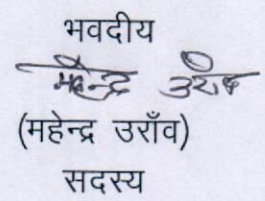 भवदीय
महेन्द्र उराँव
(महेन्द्र उराँव)
सदस्य